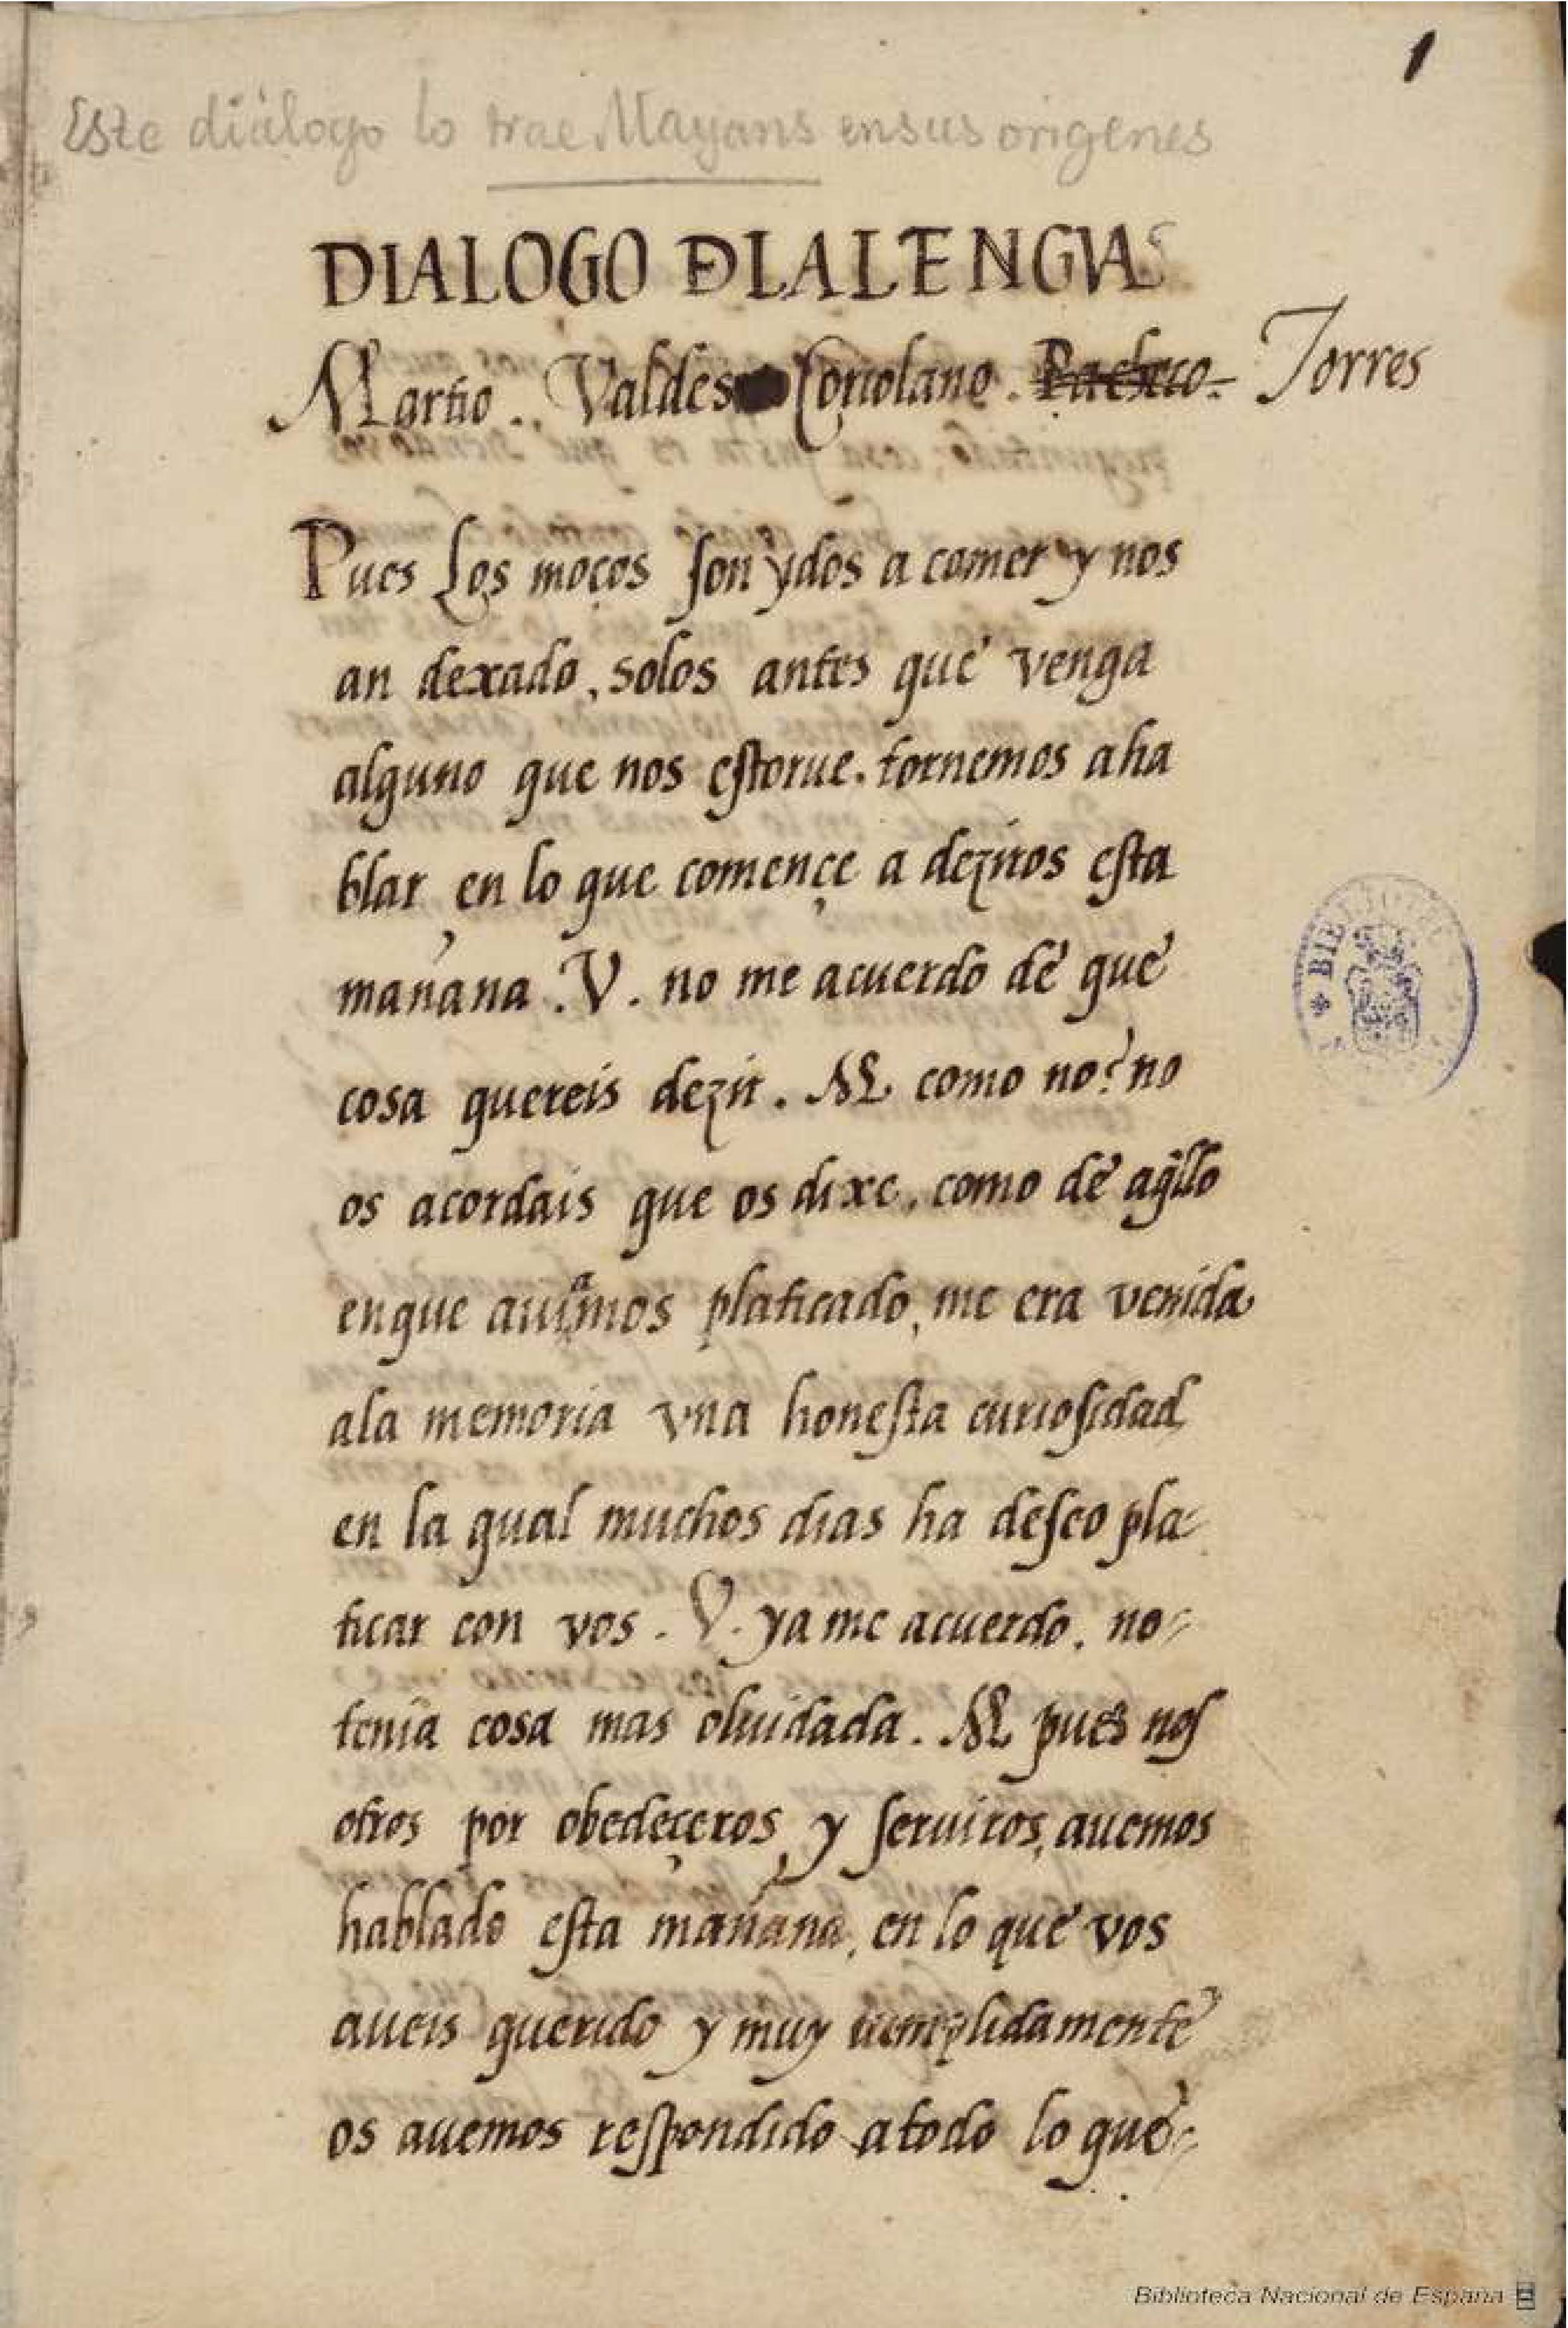 1
Este diálogo lo trae Mayans en sus origenes
DIALOGO DLALENGVAS
Martio.. Valdés Coriolano. Pacheco. Torres
Pues Los moços son ydos a comer y nos
an dexado, solos antes que venga
alguno que nos estorue. tornemos aha
blar en lo que començe a deziros esta
mañana. V. no me acuerdo de que
cosa quereis dezir. M como no? no
os acordais que os dixe, como de aq̃llo
enque auiamos platicado, me era venida
ala memoria vna honesta curiosidad
en la qual muchos dias ha deseo pla-
ticar con vos. V. ya me acuerdo. no-
tenia cosa mas oluidada. M pues nos
otros por obedeçeros, y seruiros, auemos
hablado esta mañana, en lo que vos
aueis querido y muy cumplidamente
os auemos respondido atodo lo que-
BIBLIOTE
Biblioteca Nacional de España